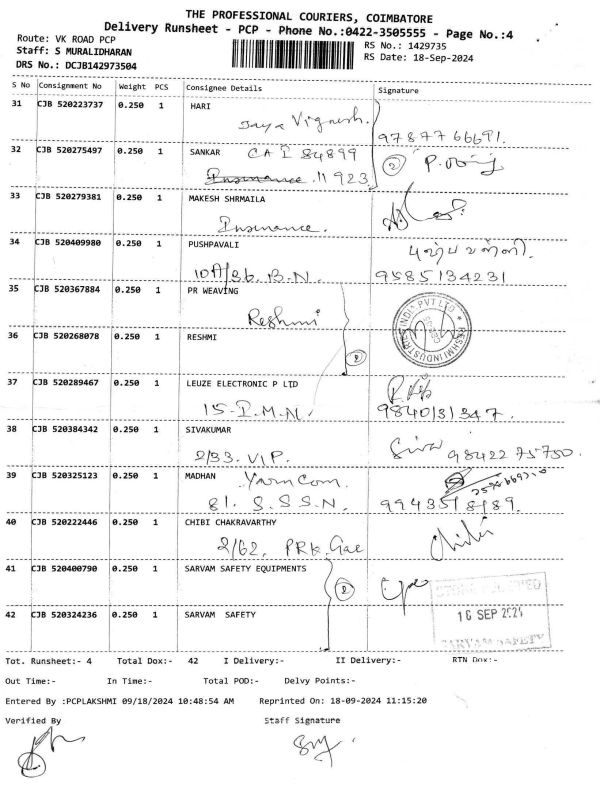 THE PROFESSIONAL COURIERS, COIMBATORE
Delivery Runsheet - PCP - Phone No.:0422-3505555 - Page No.:4
Route: VK ROAD PCP
RS No.: 1429735
Staff: S MURALIDHARAN
RS Date: 18-Sep-2024
DRS No.: DCJB142973504
S No Consignment No Weight PCS Consignee Details Signature
31 CJB 520223737 0.250 1 HARI
Jaya Vignesh.
9787766691.
32 CJB 520275497 0.250 1 SANKAR CAI 84899
Insurance. 11 923 2
33 CJB 520279381 0.250 1 MAKESH SHRMAILA
Insurance.
34 CJB 520409980 0.250 1 PUSHPAVALI
10A/26. B.N. 9585134231
35 CJB 520367884 0.250 1 PR WEAVING
Reshmi
RESHMI INDUSTRIES INDIA PVT LTD
36 CJB 520268078 0.250 1 RESHMI
2
37 CJB 520289467 0.250 1 LEUZE ELECTRONIC P LTD
15-P.M.N. 9840131347.
38 CJB 520384342 0.250 1 SIVAKUMAR
2/33. V.I.P. Siva 9842275750.
39 CJB 520325123 0.250 1 MADHAN Yarn Com.
81. S.S.S.N. 9943518189
40 CJB 520222446 0.250 1 CHIBI CHAKRAVARTHY
2/62. PRK. Chibi
41 CJB 520400790 0.250 1 SARVAM SAFETY EQUIPMENTS 2
42 CJB 520324236 0.250 1 SARVAM SAFETY
SARVAM SAFETY
Tot. Runsheet:- 4 Total Dox:- 42 I Delivery:- II Delivery:- RTN Dox:-
Out Time:- In Time:- Total POD:- Delvy Points:-
Entered By :PCPLAKSHMI 09/18/2024 10:48:54 AM Reprinted On: 18-09-2024 11:15:20
Verified By Staff Signature